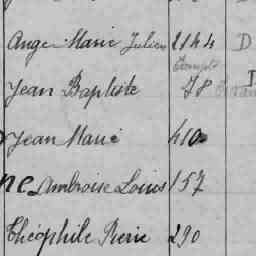 Ange Marie Julien 2144 D
Jean Baptiste 78
Jean Marie 410
ne Ambroise Louis 157
Théophile Pierre 290